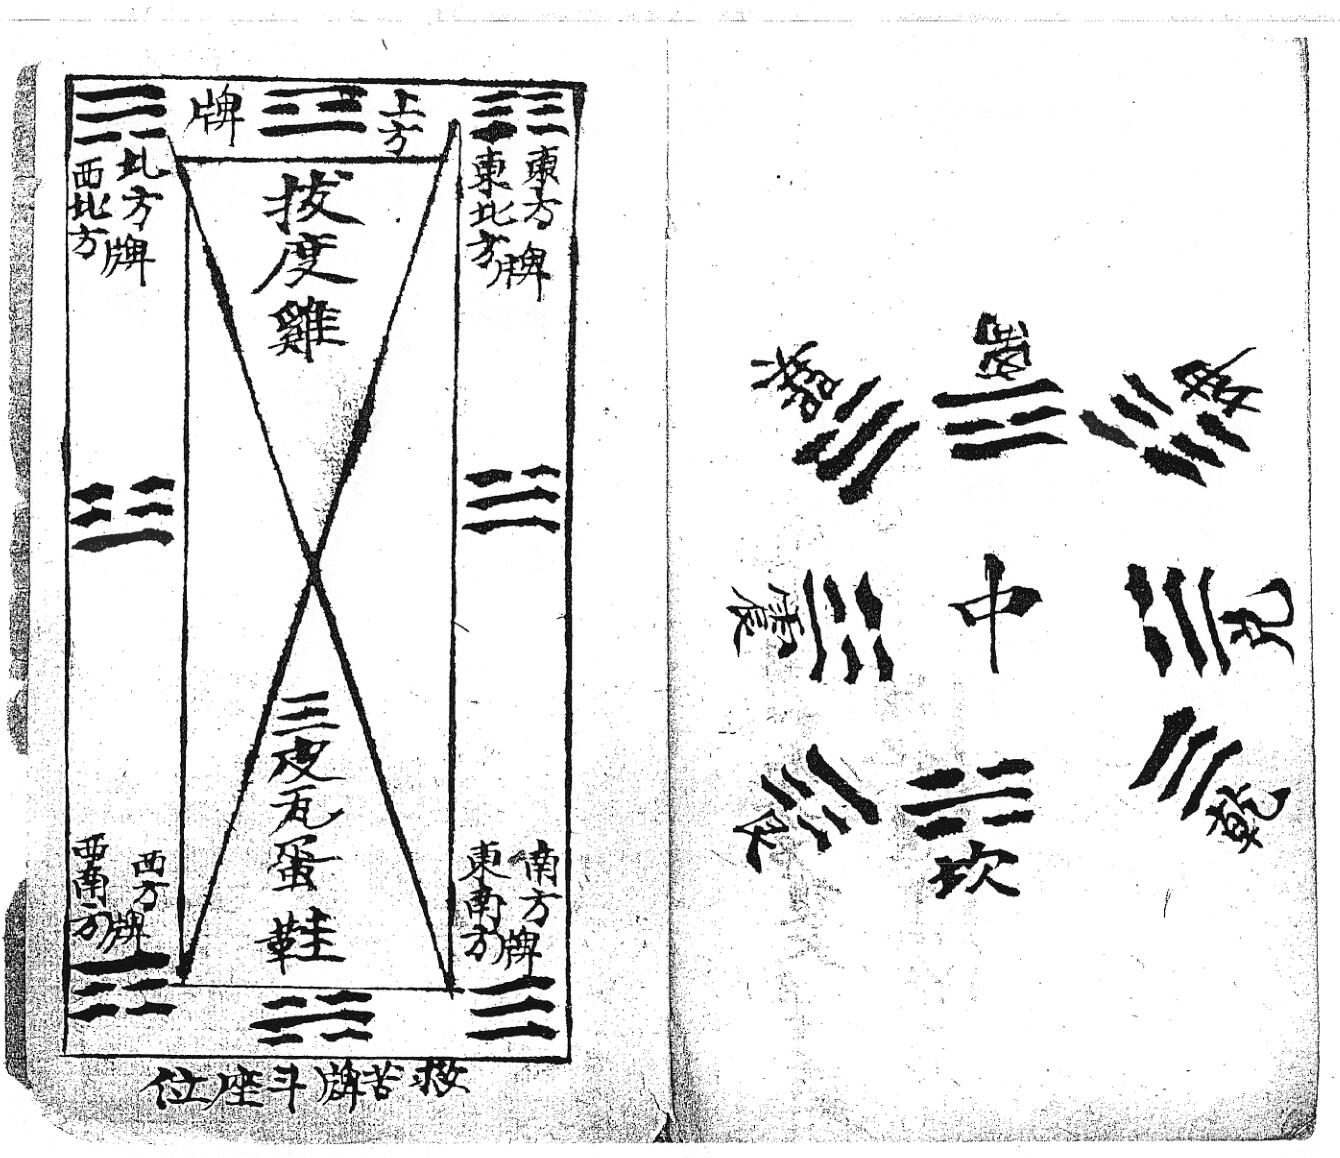 上方
牌
東方
東北方
牌
北方
西北方
牌
拔度雞
三皮瓦蛋鞋
南方
東南方
牌
西方
西南方
牌
救苦牌斗座位
中
兌
乾
坎
艮
震
巽
離
坤